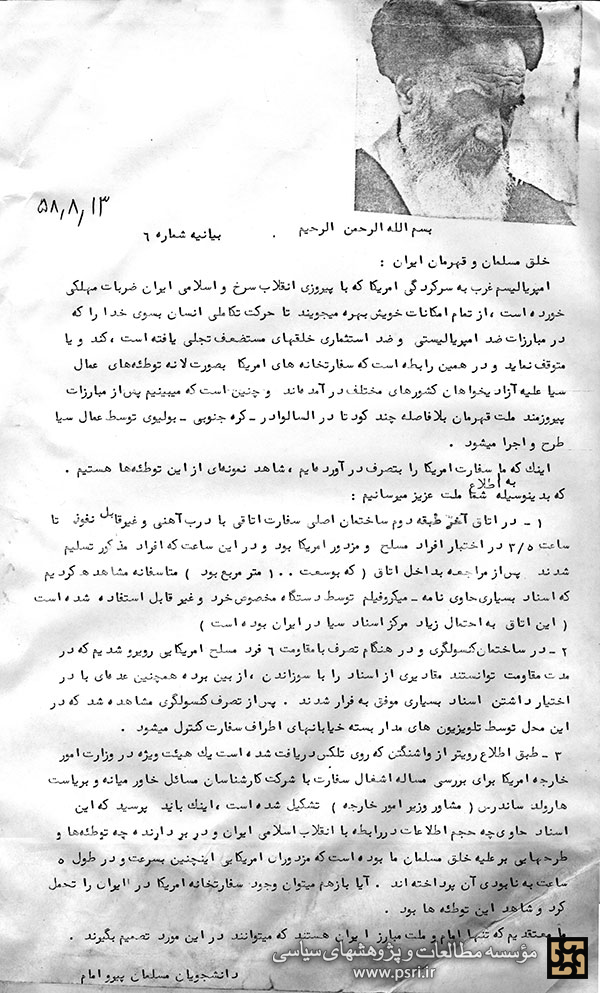 ۵۸٫۸٫۱۳
بسم الله الرحمن الرحیم . بیانیه شماره ۶
خلق مسلمان و قهرمان ایران :
امپریالیسم غرب به سرکردگی امریکا که با پیروزی انقلاب سرخ و اسلامی ایران ضربات مهلکی
خورده است ، از تمام امکانات خویش بهره میجویند تا حرکت تکاملی انسان بسوی خدا را که
در مبارزات ضد امپریالیستی و ضد استثماری خلقهای مستضعف تجلی یافته است ، کند و یا
متوقف نماید و در همین رابطه است که سفارتخانه های امریکا بصورت لانه توطئه‌های عمال
سیا علیه آزادیخواهان کشورهای مختلف در آمده‌اند و چنین است که میبینیم پس از مبارزات
پیروزمند ملت قهرمان بلافاصله چند کودتا در السالوادر ـ کره جنوبی ـ بولیوی توسط عمال سیا
طرح و اجرا میشود .
اینک که ما سفارت امریکا را بتصرف در آورده‌ایم ، شاهد نمونه‌ای از این توطئه‌ها هستیم .
که بدینوسیله به اطلاع شما ملت عزیز میرسانیم :
۱ - در اتاق آخر طبقه دوم ساختمان اصلی سفارت اتاقی با درب آهنی و غیرقابل نفوذ تا
ساعت ۳/۵ در اختیار افراد مسلح و مزدور امریکا بود و در این ساعت که افراد مذکور تسلیم
شدند پس از مراجعه بداخل اتاق ( که بوسعت ۱۰۰ متر مربع بود ) متاسفانه مشاهده کردیم
که اسناد بسیاری حاوی نامه ـ میکروفیلم توسط دستگاه مخصوص خرد و غیر قابل استفاده شده است
( این اتاق به احتمال زیاد مرکز اسناد سیا در ایران بوده است )
۲ - در ساختمان کنسولگری و در هنگام تصرف با مقاومت ۶ فرد مسلح امریکایی روبرو شدیم که در
مدت مقاومت توانستند مقادیری از اسناد را با سوزاندن ، از بین برده همچنین عده‌ای با در
اختیار داشتن اسناد بسیاری موفق به فرار شدند . پس از تصرف کنسولگری مشاهده شد که در
این محل توسط تلویزیون های مدار بسته خیابانهای اطراف سفارت کنترل میشود .
۳ - طبق اطلاع رویتر از واشنگتن که روی تلکس دریافت شده است یک هیئت ویژه در وزارت امور
خارجه امریکا برای بررسی مساله اشغال سفارت با شرکت کارشناسان مسائل خاور میانه و بریاست
هارولد ساندرس ( مشاور وزیر امور خارجه ) تشکیل شده است ، اینک باید پرسید که این
اسناد حاوی چه حجم اطلاعات در رابطه با انقلاب اسلامی ایران و در بر دارنده چه توطئه‌ها و
طرحهایی بر علیه خلق مسلمان ما بوده است که مزدوران امریکایی اینچنین بسرعت و در طول ۵
ساعت به نابودی آن پرداخته اند . آیا بازهم میتوان وجود سفارتخانه امریکا در ایران را تحمل
کرد و شاهد این توطئه ها بود .
ما معتقدیم که تنها امام و ملت مبارز ایران هستند که میتوانند در این مورد تصمیم بگیرند .
دانشجویان مسلمان پیرو امام
مؤسسه مطالعات و پژوهشهای سیاسی
www.psri.ir